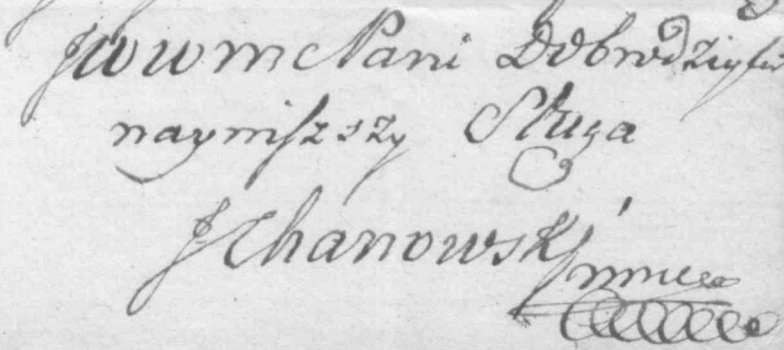 JWWMcPani Dobrodziyki
nayniższy Sługa
J Chanowski